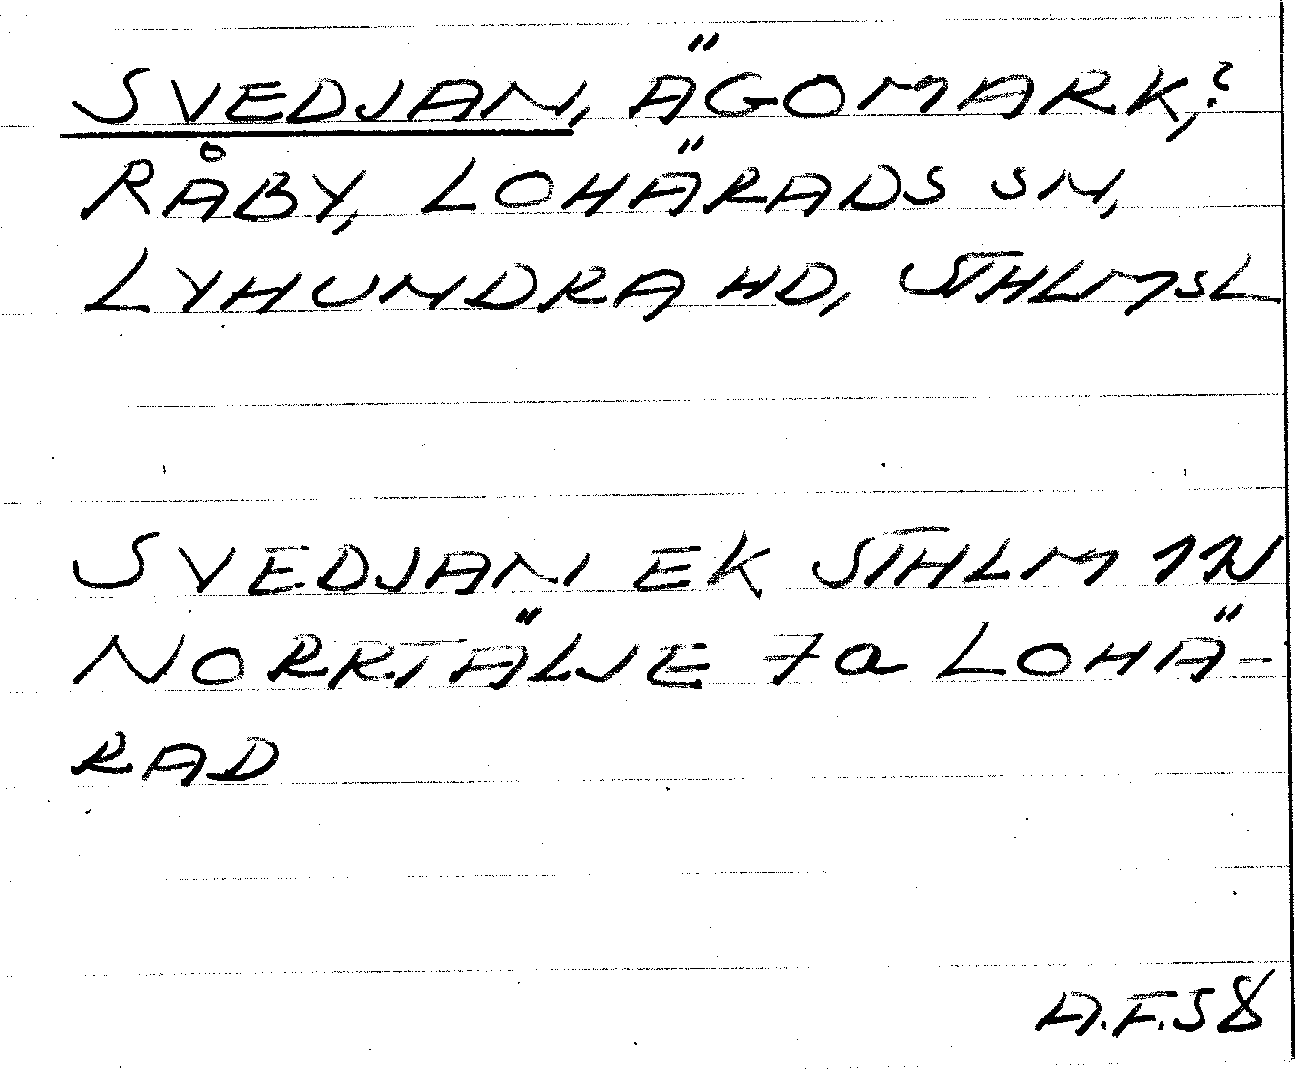 SVEDJAN, ÄGOMARK,?
RÅBY, LOHÄRADS SN,
LYHUNDRA HD, STHLMSL
SVEDJAN EK STHLM 11N
NORRTÄLJE 7a LOHÄ-
RAD
A.F.58